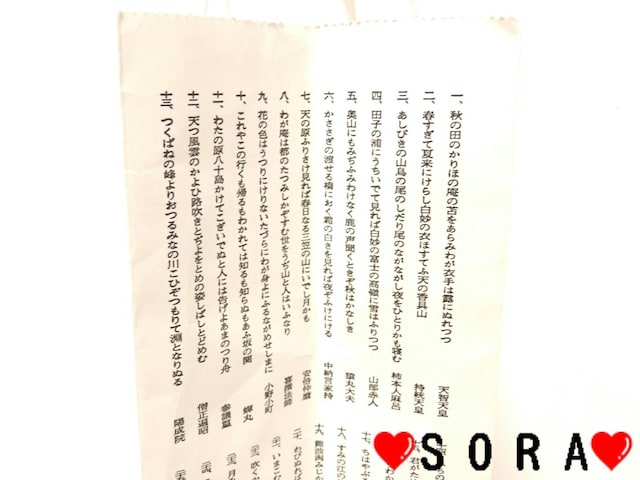 一、秋の田のかりほの庵の苫をあらみわが衣手は露にぬれつつ 天智天皇
二、春すぎて夏来にけらし白妙の衣ほすてふ天の香具山 持統天皇
三、あしびきの山鳥の尾のしだり尾のながながし夜をひとりかも寝む 柿本人麻呂
四、田子の浦にうちいでて見れば白妙の富士の高嶺に雪はふりつつ 山部赤人
五、奥山にもみぢふみわけなく鹿の声聞くときぞ秋はかなしき 猿丸大夫
六、かささぎの渡せる橋におく霜の白きを見れば夜ぞふけにける 中納言家持
七、天の原ふりさけ見れば春日なる三笠の山にいでし月かも 安倍仲麿
八、わが庵は都のたつみしかぞすむ世をうぢ山と人はいふなり 喜撰法師
九、花の色はうつりにけりないたづらにわが身よにふるながめせしまに 小野小町
十、これやこの行くも帰るもわかれては知るも知らぬもあふ坂の関 蝉丸
十一、わたの原八十島かけてこぎいでぬと人には告げよあまのつり舟 参議篁
十二、天つ風雲のかよひ路吹きとぢよをとめの姿しばしとどめむ 僧正遍昭
十三、つくばねの峰よりおつるみなの川こひぞつもりて淵となりぬる 陽成院
君がた
十七、ちはやぶる
十八、すみの江の
十九、難波潟みじか
二十、わびぬれば
いまこむ
吹くか
月
❤SORA❤